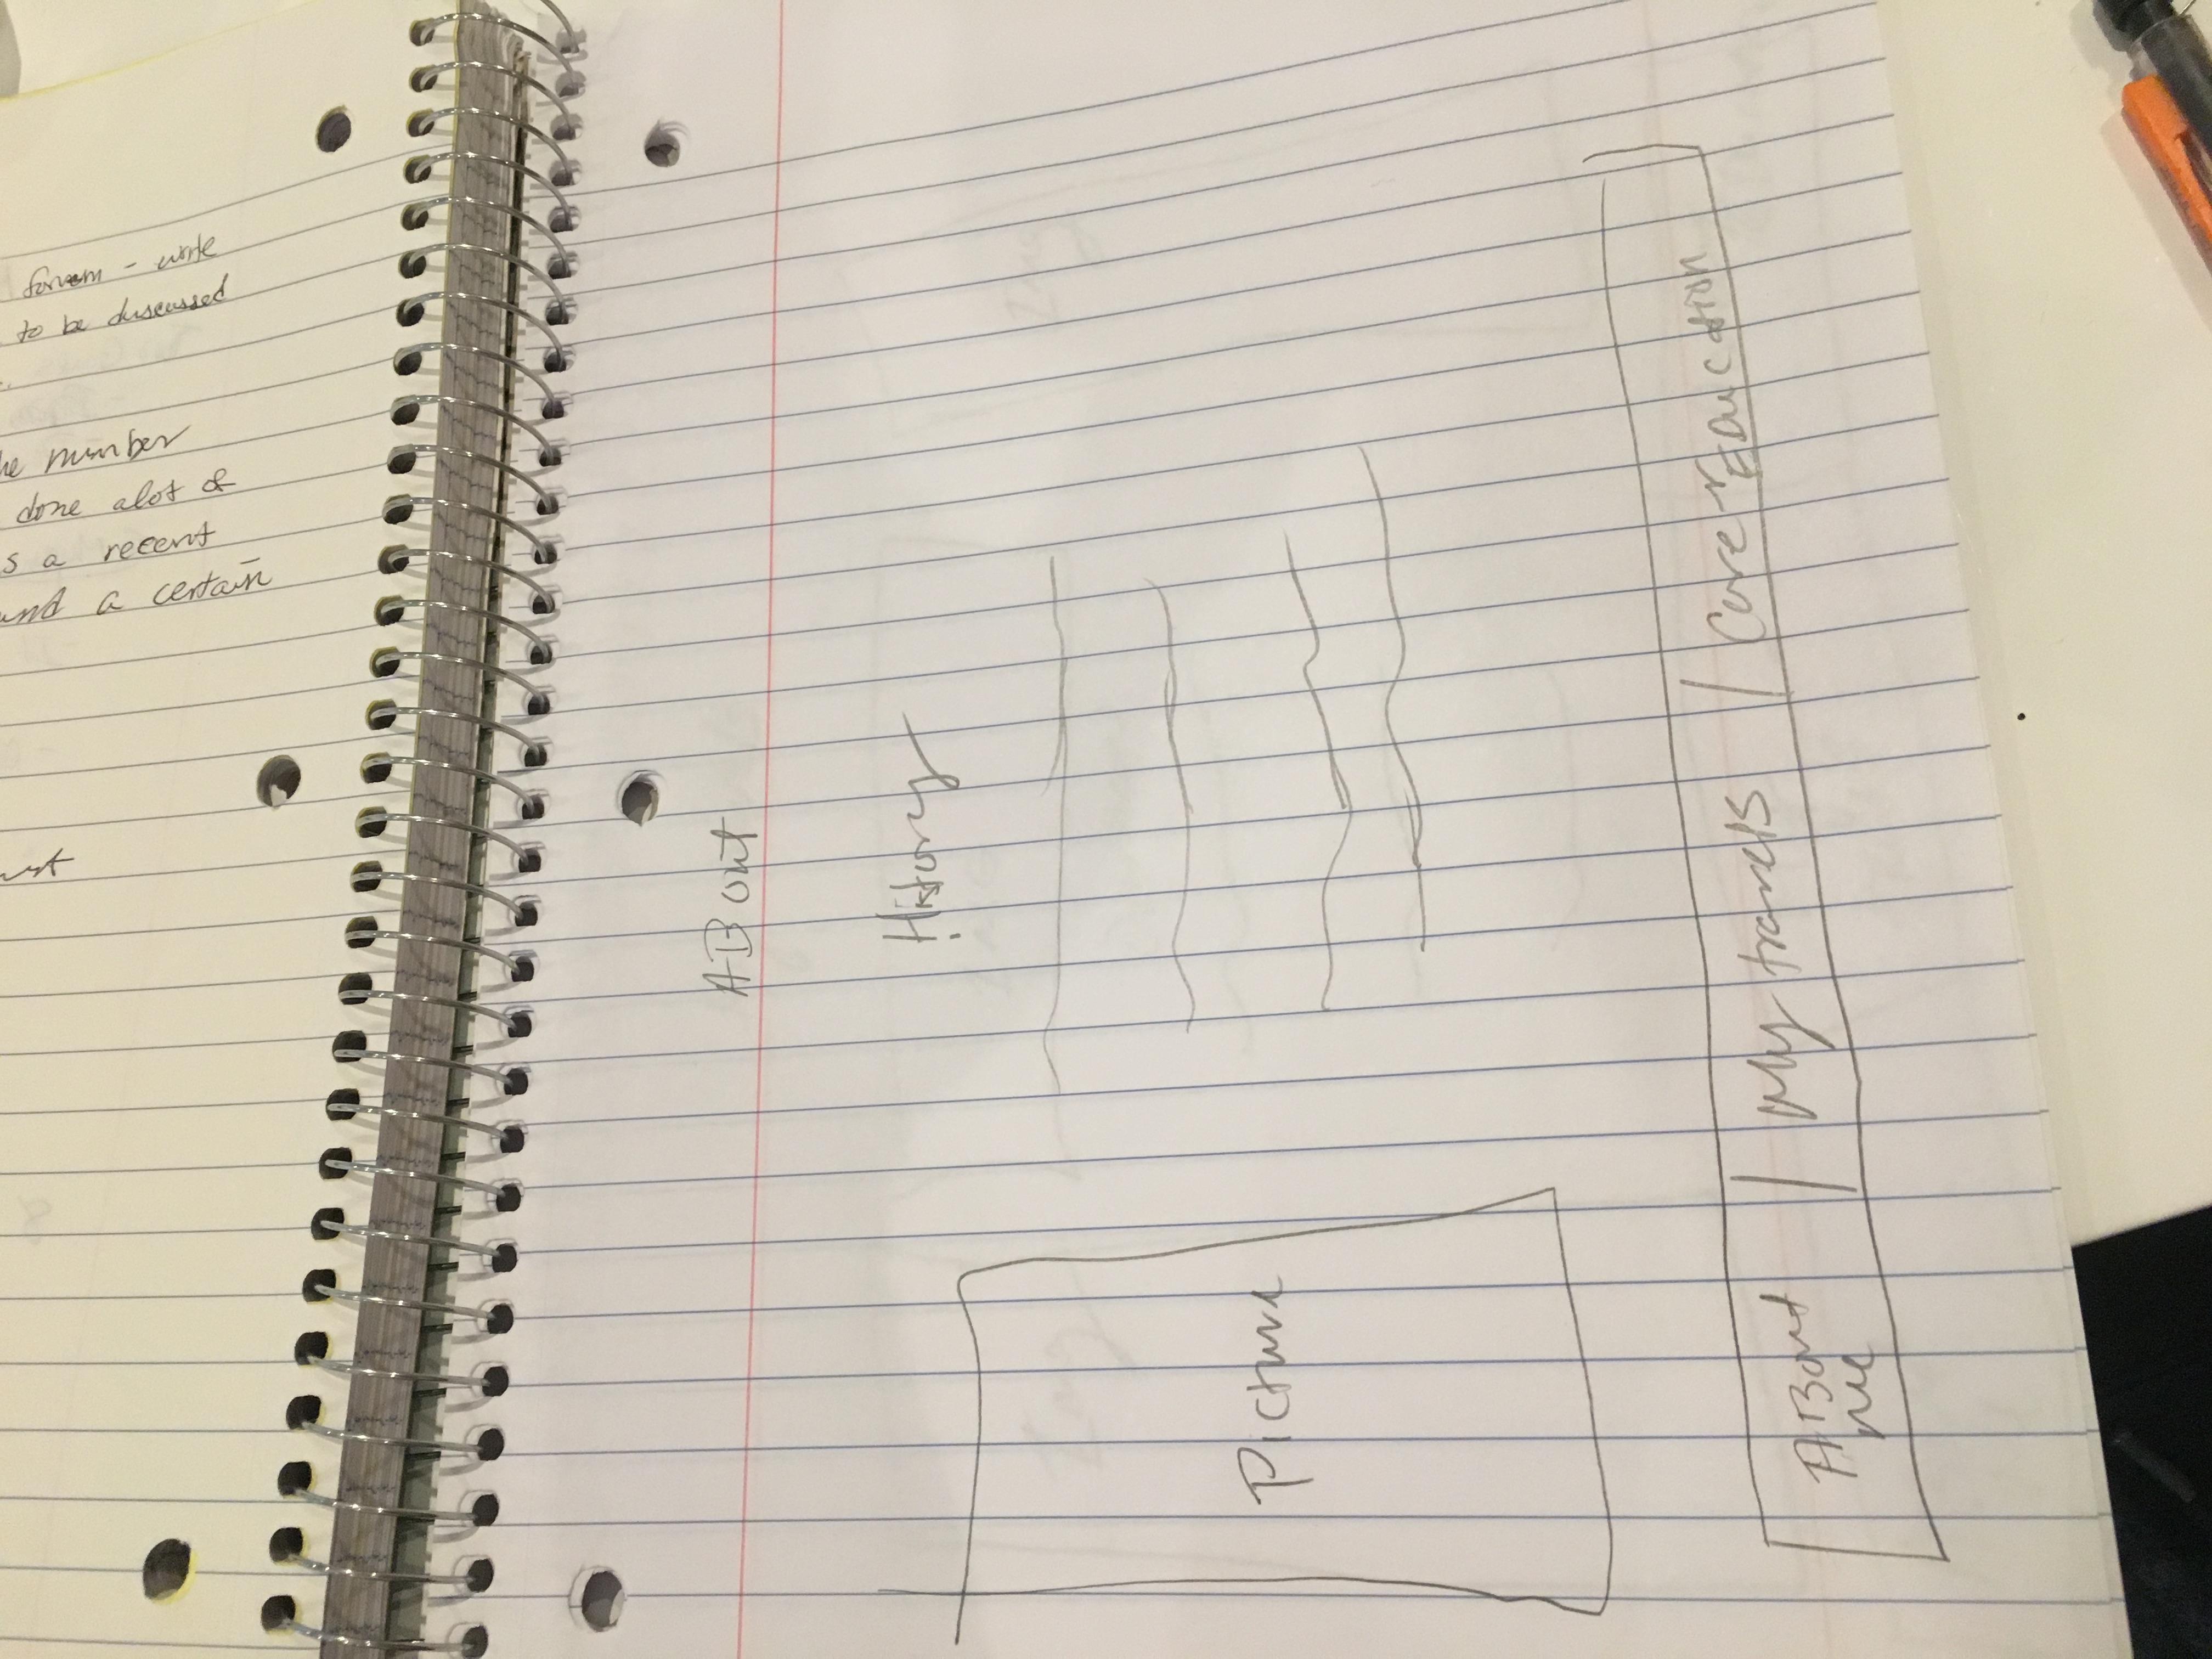 forum - work
to be discussed
number
done alot of
s a recent
and a certain
ABout
History
Picture
ABout | My travels | Career Education
me